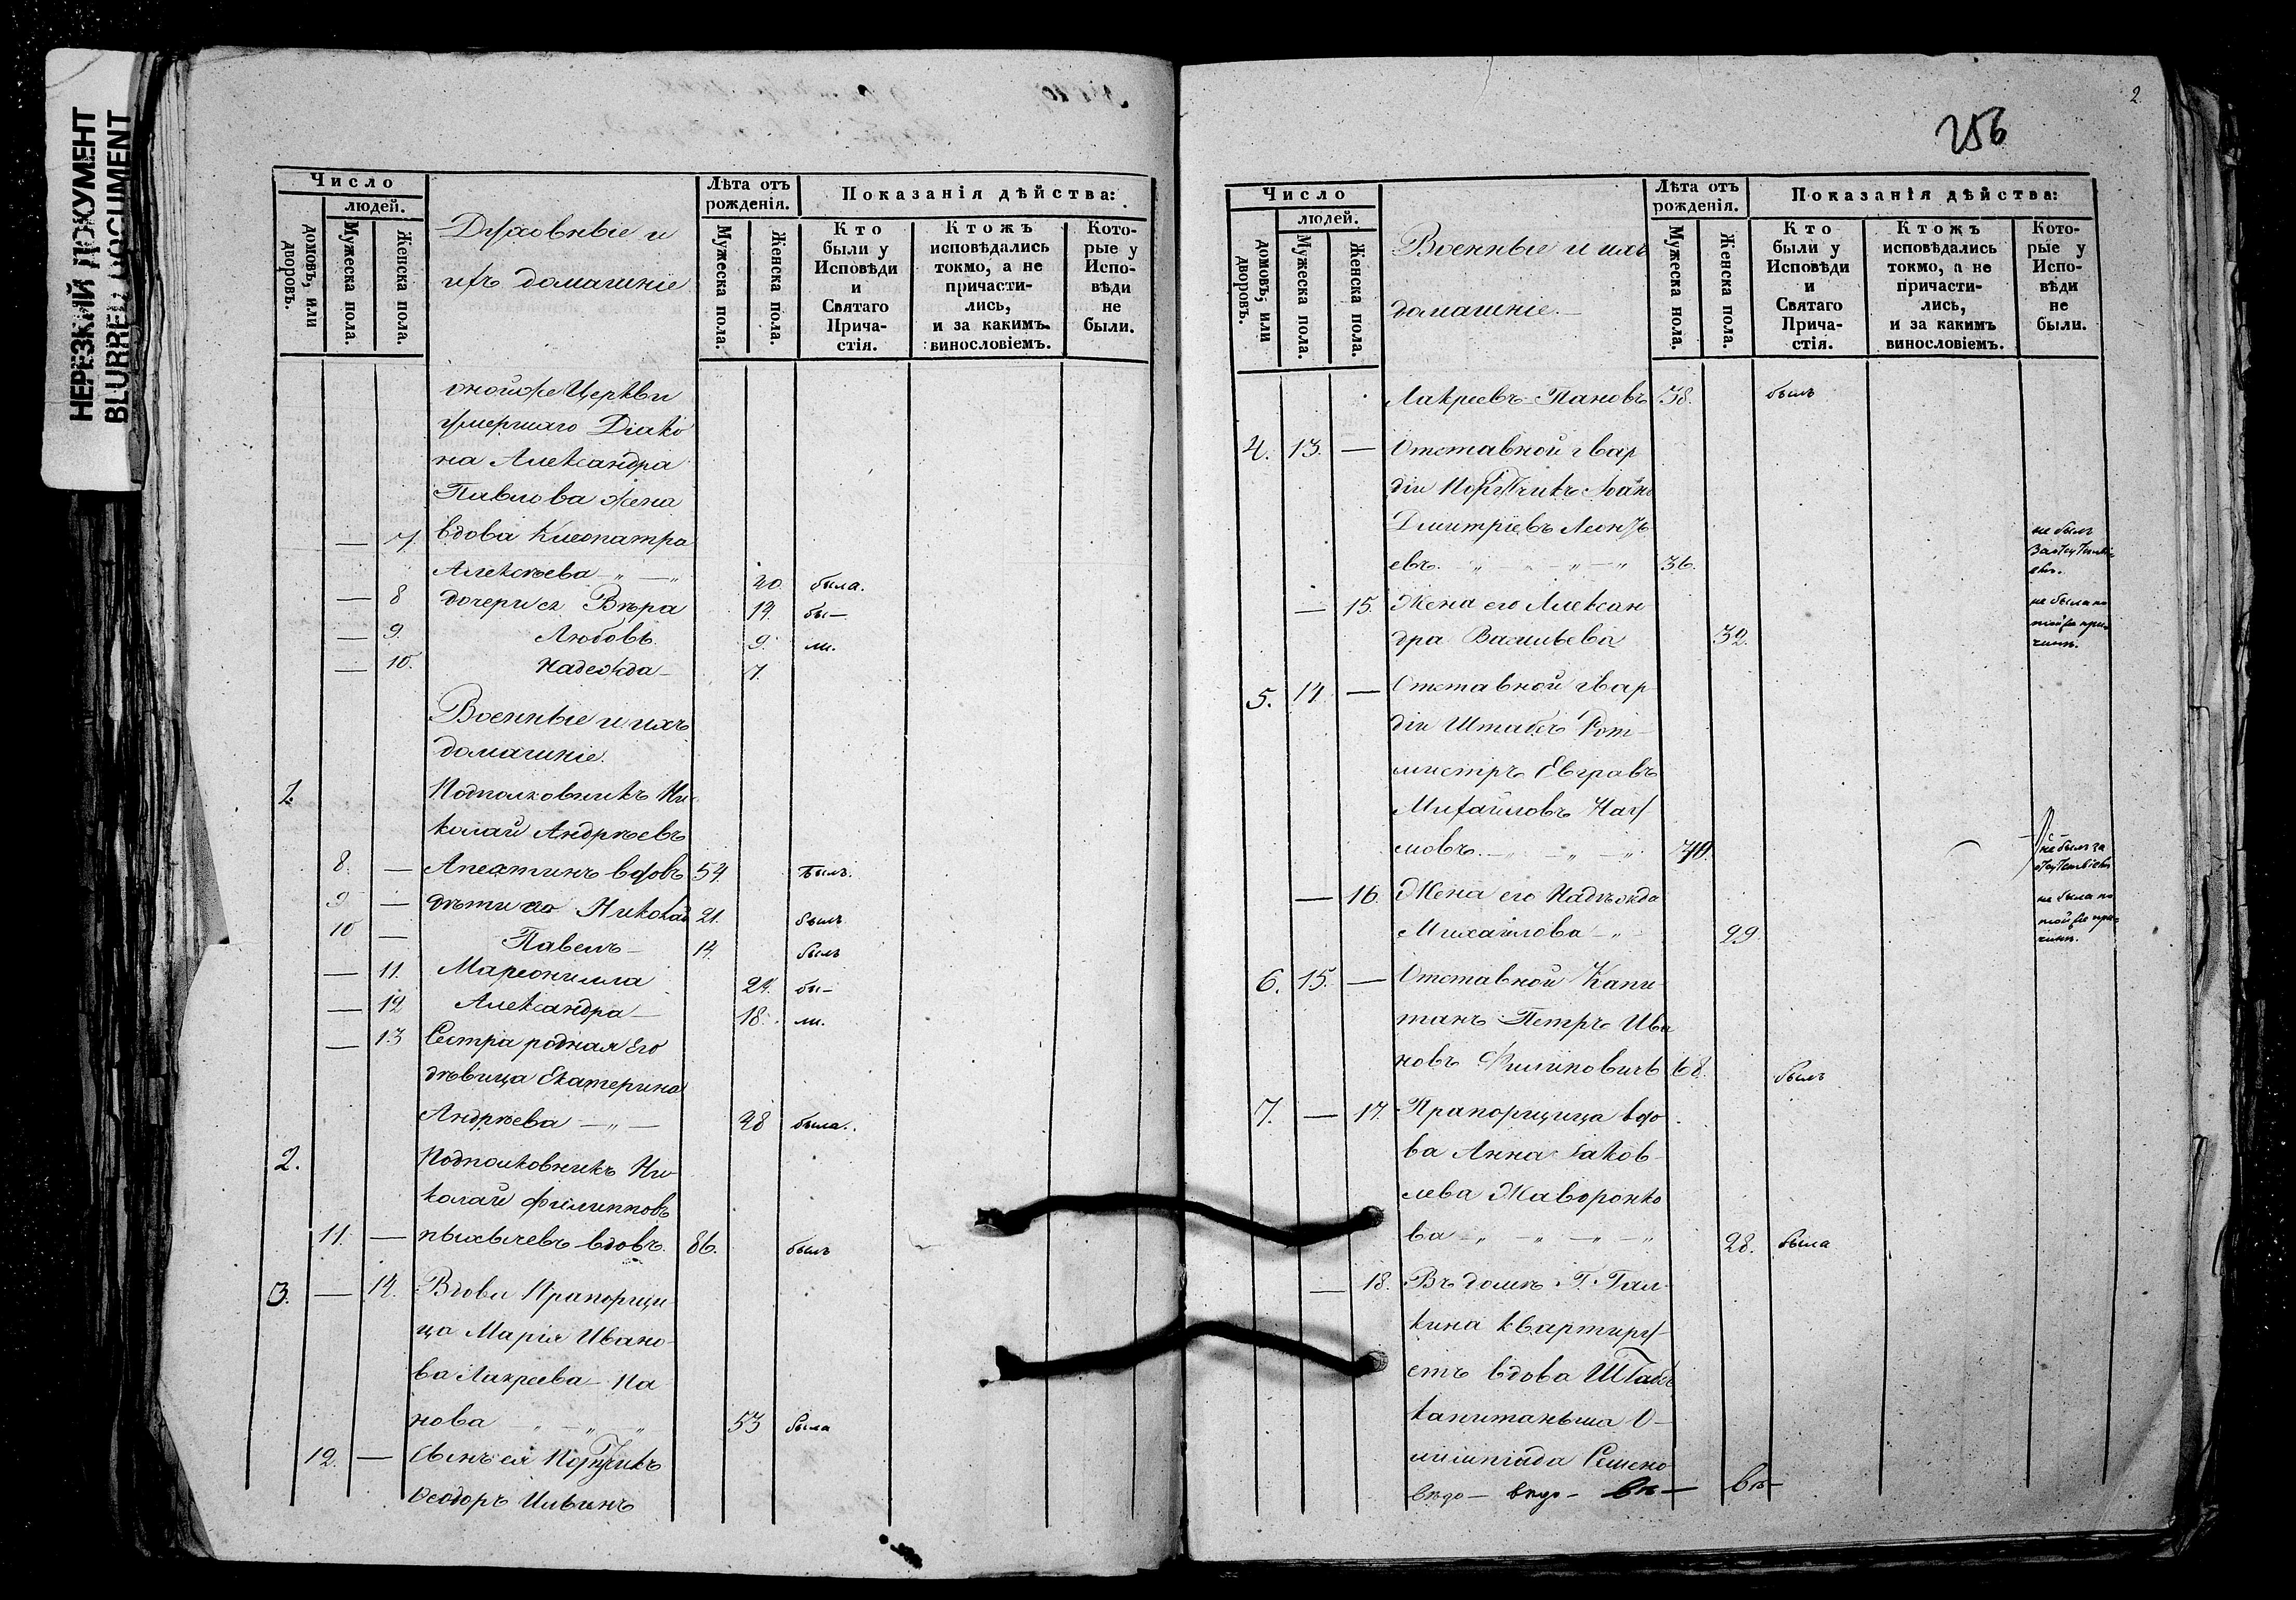 НЕРЕЗКИЙ ДОКУМЕНТ
BLURRED DOCUMENT
Число
людей.
домовъ, или дворовъ.
Мужеска пола.
Женска пола.
Духовные и
ихъ домашніе
Лѣта отъ рожденія.
Мужеска пола.
Женска пола.
Показанія дѣйства:
Кто были у Исповѣди и Святаго Прича-стія.
Ктожъ исповѣдались токмо, а не причасти-лись, и за какимъ винословіемъ.
Кото-рые у Испо-вѣди не были.
онойже Церкви
умершаго Діако
на Александра
Павлова жена
— 7. вдова Клеопатра
Алексѣева — „ — „ 40 была.
— 8 дочери ея Вѣра 14. бы—
— 9. Любовь. 9. ли.
— 10. Надежда — 7.
Военные и ихъ
домашніе.
1. Подполковникъ Ни-
колай Андреевъ
8. — Апехтинъ вдовъ 54. былъ.
9 — дѣти его Николай 21. былъ
10 — Павелъ — 14. былъ
— 11. Маріонилла 24. бы—
— 12 Александра — 18. ли.
— 13 Сестра родная Его
дѣвица Екатерина
Андреева — „ — 48 была.
2. Подполковникъ Ни-
колай Филипповъ
11. — вдовъ. 86. былъ
3. — 14. Вдова Прапорщи
ца Марія Ивано-
ва Лакреева — Па
нова — „ — „ — „ 53 была
12. — Сынъ ея Поручикъ
Ѳеодоръ Ильинъ
2.
256
Число
людей.
домовъ, или дворовъ.
Мужеска пола.
Женска пола.
Военные и ихъ
домашніе. —
Лѣта отъ рожденія.
Мужеска пола.
Женска пола.
Показанія дѣйства:
Кто были у Исповѣди и Святаго Прича-стія.
Ктожъ исповѣдались токмо, а не причасти-лись, и за какимъ винословіемъ.
Кото-рые у Испо-вѣди не были.
Лакреевъ — Пановъ 38. былъ
4. 13. — Отставной гвар
діи Поручикъ Іоанъ
Дмитріевъ Леонть
евъ. — „ — „ — „ 36. не былъ
за отсутстві-
емъ.
— 15. Жена его Алексан
дра Васильева 32. не была по
той же при-
чинѣ.
5. 14. — Отставной гвар-
діи Штабсъ Рот-
мистръ Евграфъ
Михайловъ Нау
мовъ. — „ — „ — „ 40. не былъ за
отсутствіемъ
— 16. Жена его Надѣжда
Михайлова — „ — 29. не была по
той же при-
чинѣ.
6. 15. — Отставной Капи
танъ Петръ Ива
новъ Филиповичь 68. былъ
7. — 17. Прапорщица вдо
ва Анна Іаков-
лева Жаворонко
ва — „ — „ — „ — „ 28. была
— 18. Въ домѣ Г. Гал-
кина квартиру-
етъ вдова Штабсъ
капитанша О-
лимпіада Семено